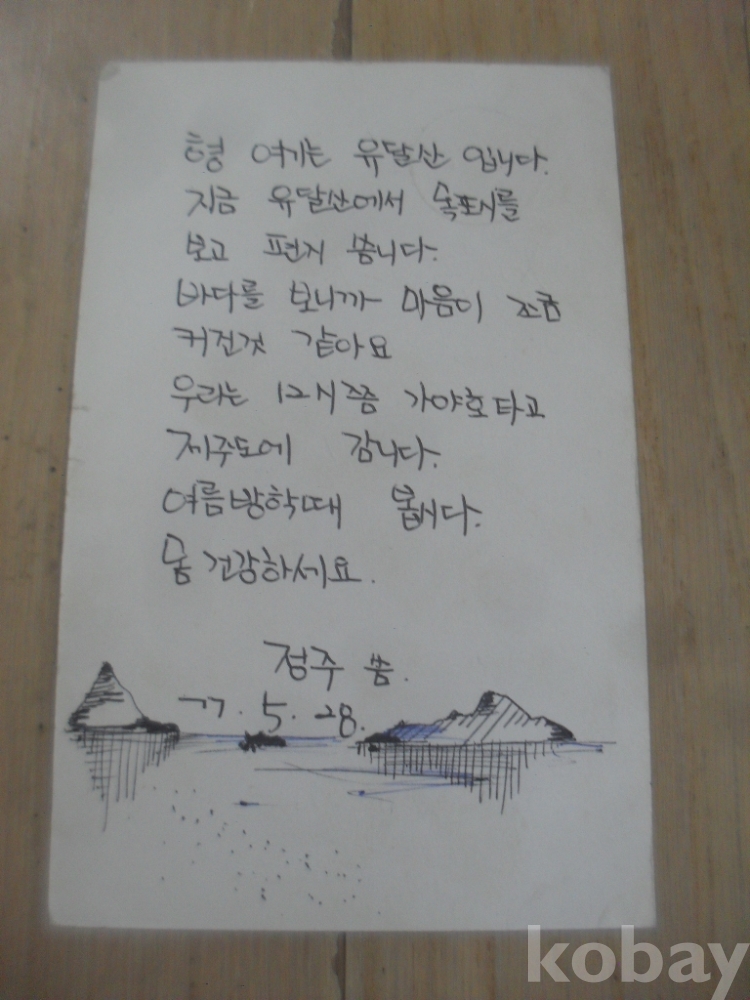 형 여기는 유달산 입니다.
지금 유달산에서 목포시를
보고 편지 씁니다.
바다를 보니까 마음이 조금
커진것 같아요
우리는 12시쯤 가야호타고
제주도에 갑니다.
여름방학때 봅시다.
몸 건강하세요.
정주 씀.
77. 5. 28.
kobay